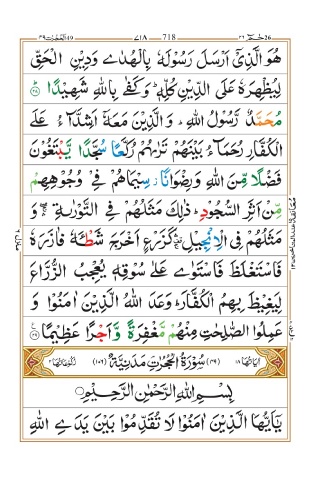 حٰمٓ ٢٦ 718 ٧١٨ الفتح ٤٨
هُوَ الَّذِیْۤ اَرْسَلَ رَسُوْلَهٗ بِالْهُدٰی وَدِیْنِ الْحَقِّ
لِیُظْهِرَهٗ عَلَی الدِّیْنِ كُلِّهٖ ؕ وَكَفٰی بِاللّٰهِ شَهِیْدًا ﴿٢٨﴾
مُحَمَّدٌ رَّسُوْلُ اللّٰهِ ؕ وَالَّذِیْنَ مَعَهٗۤ اَشِدَّآءُ عَلَی
الْكُفَّارِ رُحَمَآءُ بَیْنَهُمْ تَرٰىهُمْ رُكَّعًا سُجَّدًا یَّبْتَغُوْنَ
فَضْلًا مِّنَ اللّٰهِ وَرِضْوَانًا ؗ سِیْمَاهُمْ فِیْ وُجُوْهِهِمْ
مِّنْ اَثَرِ السُّجُوْدِ ؕ ذٰلِكَ مَثَلُهُمْ فِی التَّوْرٰىةِ ۛۖۚ وَ
مَثَلُهُمْ فِی الْاِنْجِیْلِ ۛ۫ۚ كَزَرْعٍ اَخْرَجَ شَطْـَٔهٗ فَاٰزَرَهٗ
فَاسْتَغْلَظَ فَاسْتَوٰی عَلٰی سُوْقِهٖ یُعْجِبُ الزُّرَّاعَ
لِیَغِیْظَ بِهِمُ الْكُفَّارَ ؕ وَعَدَ اللّٰهُ الَّذِیْنَ اٰمَنُوْا وَ
عَمِلُوا الصّٰلِحٰتِ مِنْهُمْ مَّغْفِرَةً وَّاَجْرًا عَظِیْمًا ﴿٢٩﴾
اٰیَاتُهَا ١٨ (٤٩) سُوْرَةُ الْحُجُرٰتِ مَدَنِیَّةٌ (١٠٦) رُكُوْعَاتُهَا ٢
بِسْمِ اللّٰهِ الرَّحْمٰنِ الرَّحِیْمِ
یٰۤاَیُّهَا الَّذِیْنَ اٰمَنُوْا لَا تُقَدِّمُوْا بَیْنَ یَدَیِ اللّٰهِ